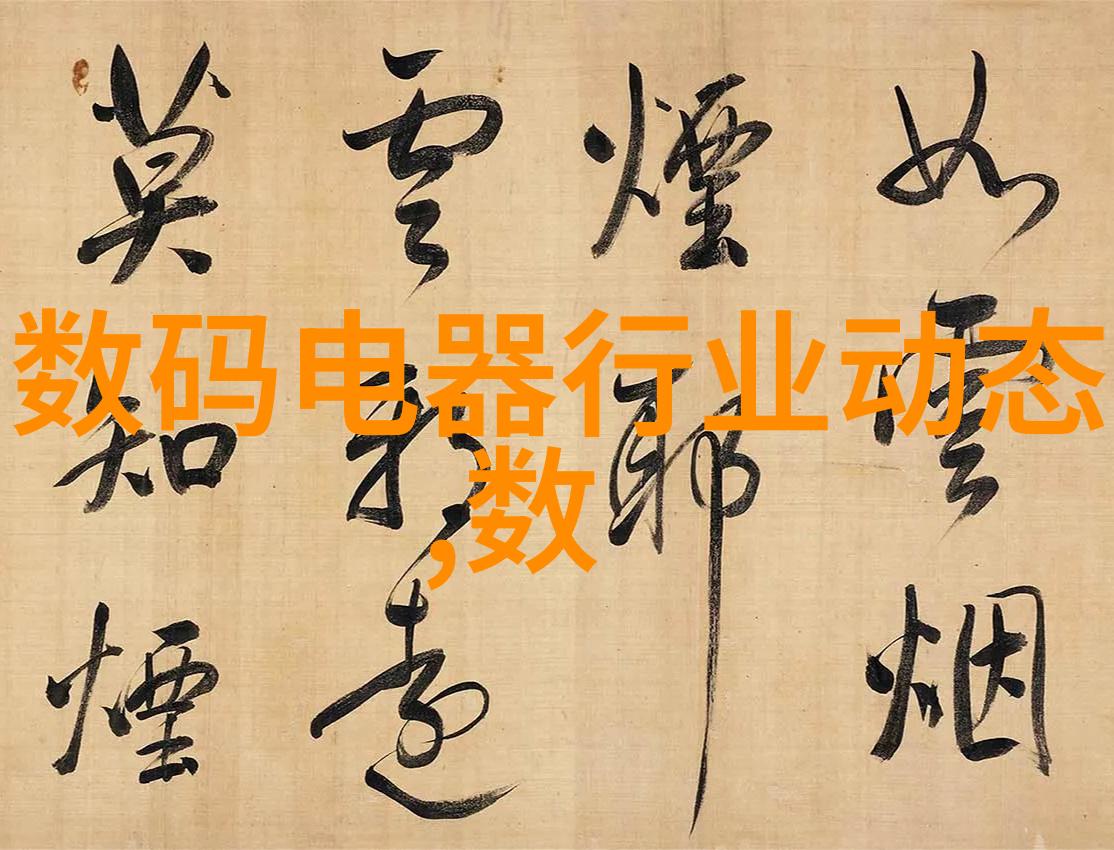 数码电器行业动态
,数
如雲烟
煙耶
雲遠
莫知煙